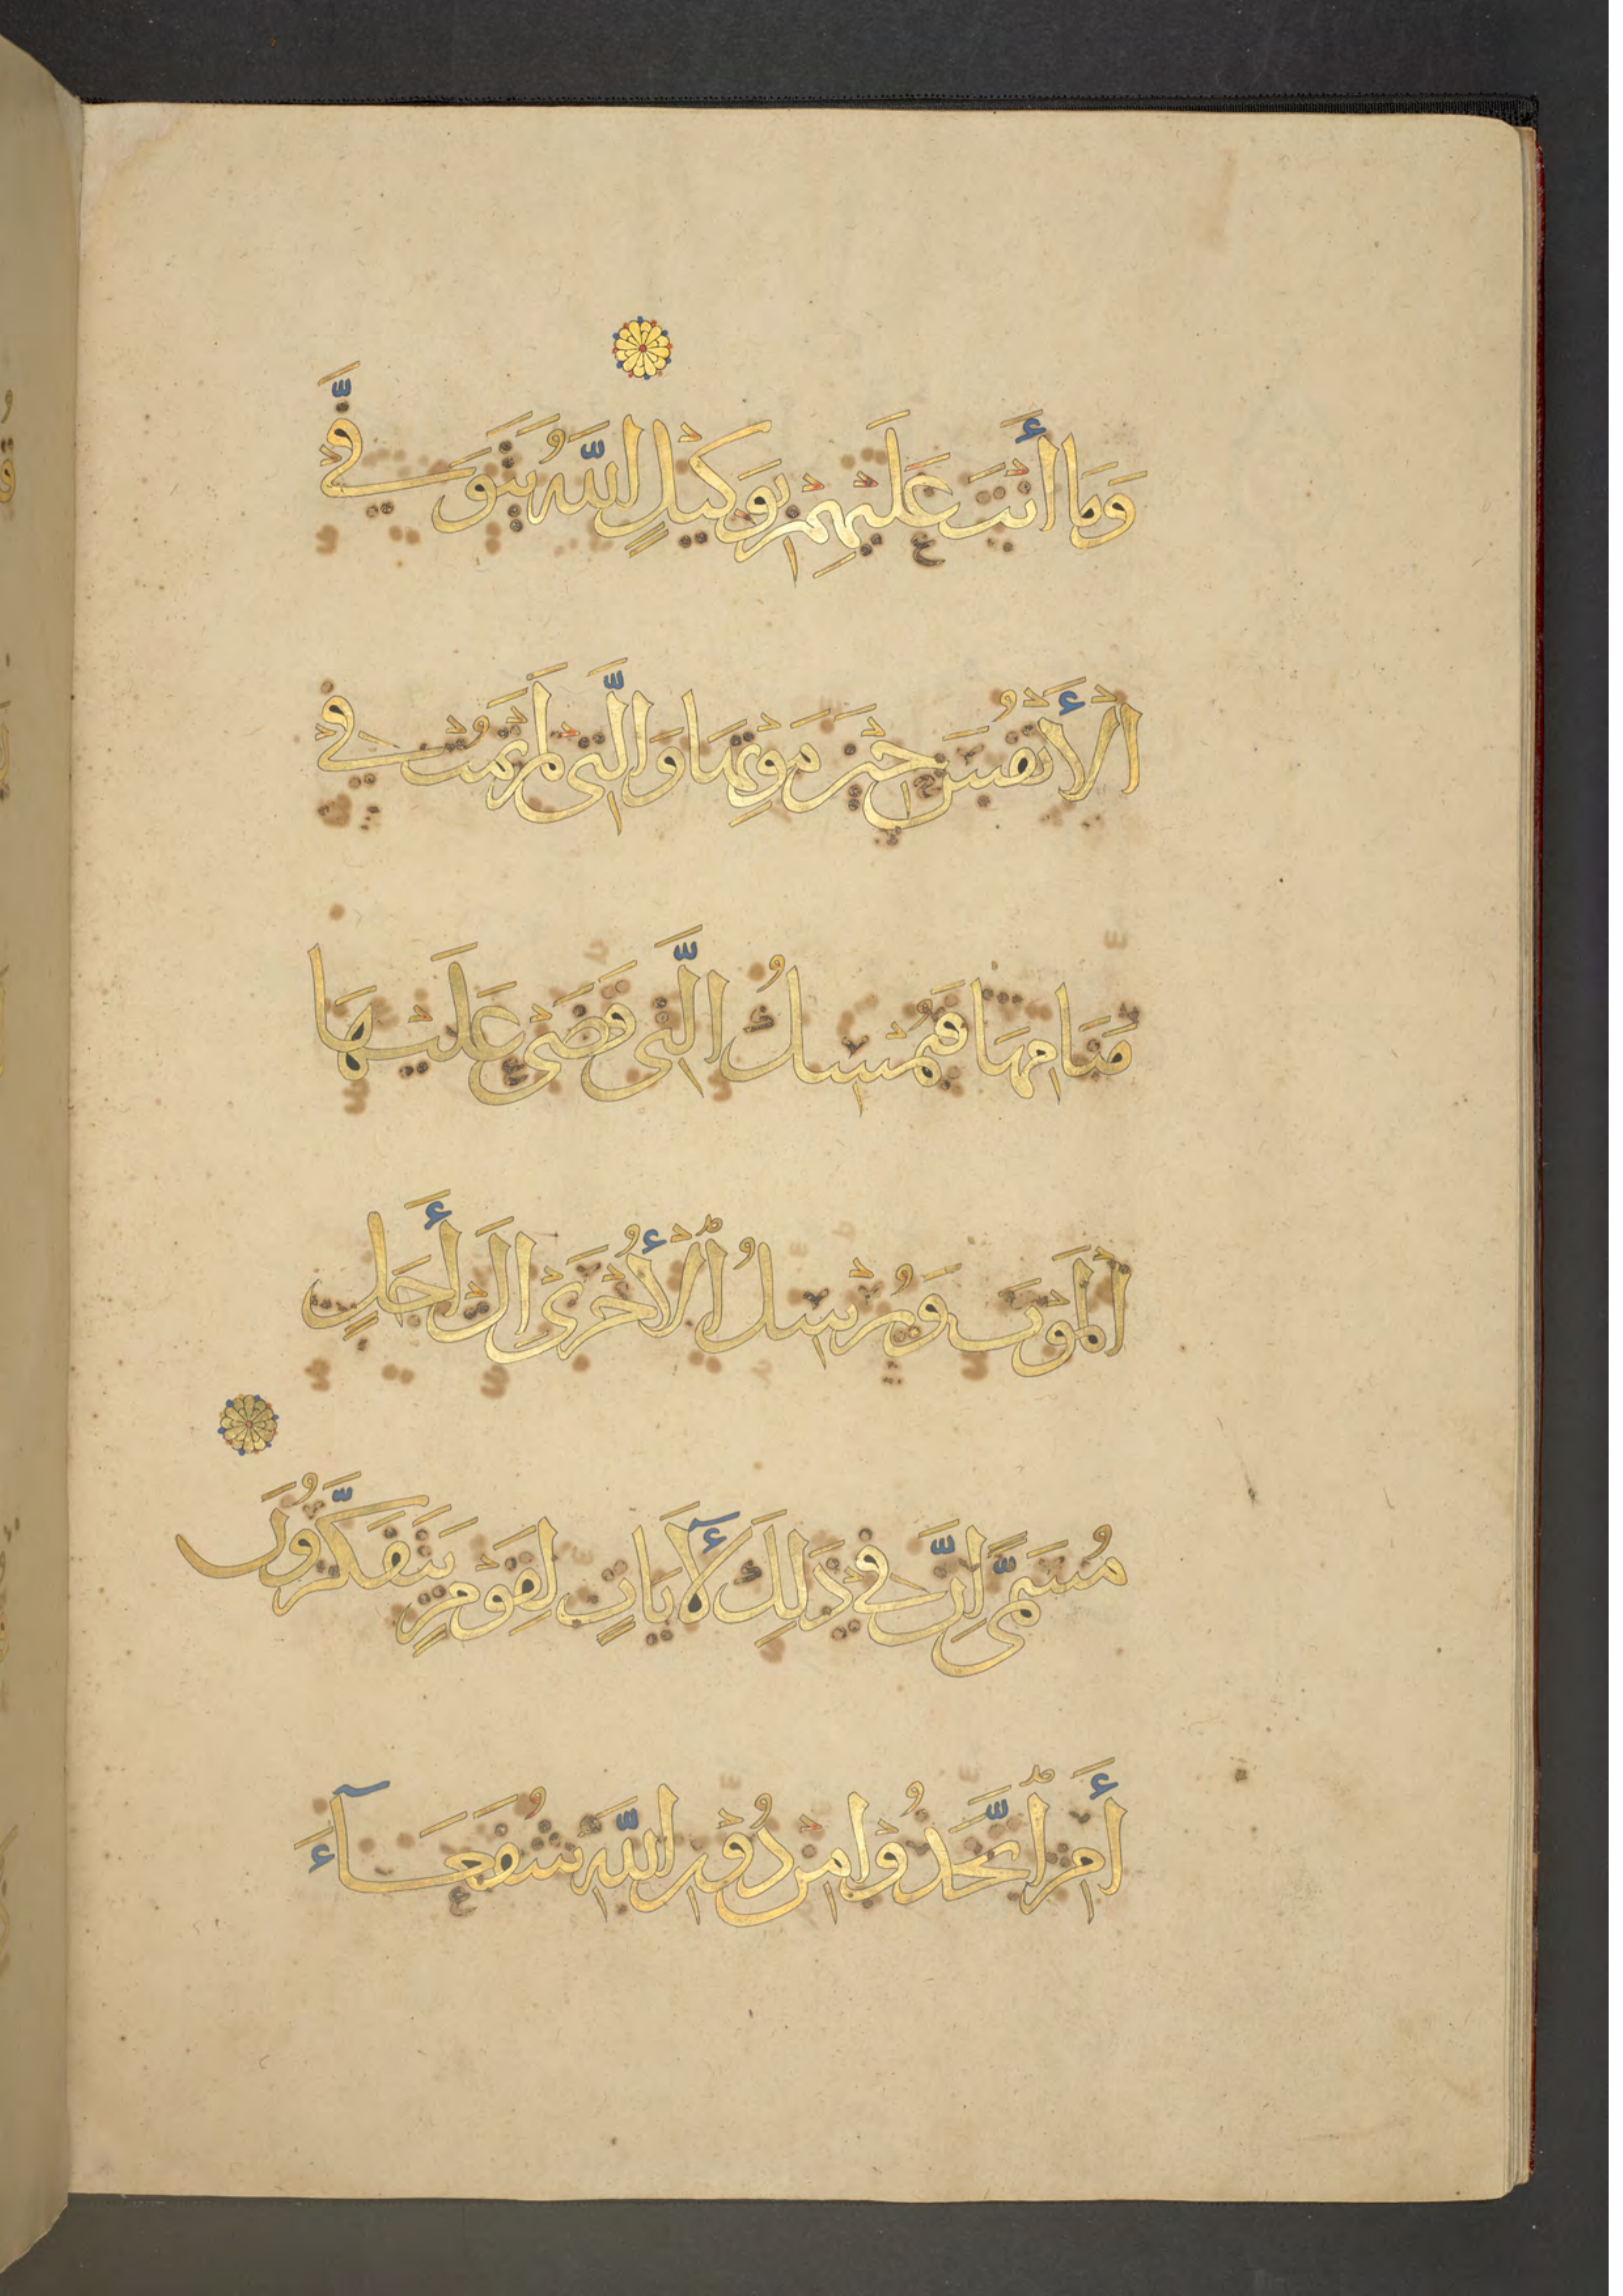 وَمَا أَنْتَ عَلَيْهِمْ بِوَكِيْلٍ اللَّهُ يَتَوَفَّى
الْأَنْفُسَ حِيْنَ مَوْتِهَا وَالَّتِى لَمْ تَمُتْ فِيْ
مَنَامِهَا فَيُمْسِكُ الَّتِى قَضَىْ عَلَيْهَا
الْمَوْتَ وَيُرْسِلُ الْأُخْرَىْ إِلَىْ أَجَلٍ
مُسَمًّى اِنَّ فِيْ ذَلِكَ لَآيَاتٍ لِقَوْمٍ يَتَفَكَّرُونَ
أَمِ اتَّخَذُوْا مِنْ دُوْنِ اللَّهِ شُفَعَآءَ